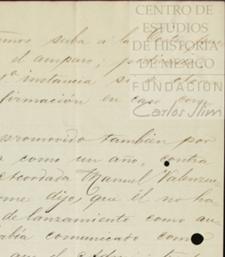 CENTRO DE
ESTUDIOS
DE HISTORIA
DE MÉXICO
FUNDACIÓN
Carlos Slim
suba á la
el amparo,
instancia si se
firmacion en caso con
promovido tambien por
como un año, contra
acordada Manuel Valenzu
me dijo que él no ha
de lanzamiento como au
bia comunicado como
que el